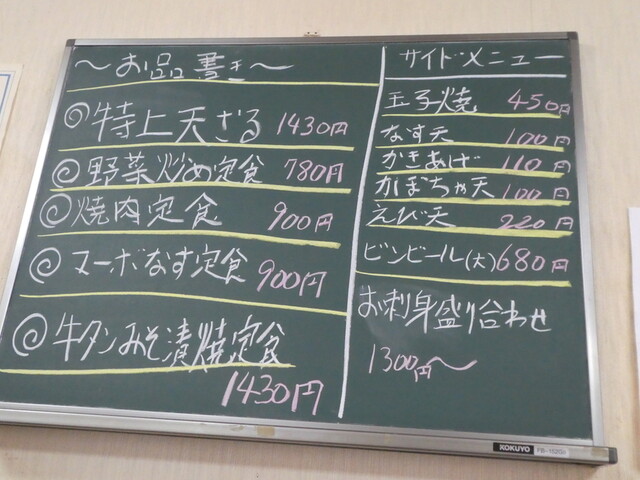 ～お品書き～
◎特上天ざる 1430円
◎野菜炒め定食 780円
◎焼肉定食 900円
◎マーボなす定食 900円
◎牛タンみそ漬焼定食
1430円
サイドメニュー
玉子焼 450円
なす天 100円
かきあげ 110円
かぼちゃ天 100円
えび天 220円
ビンビール(大) 680円
お刺身盛り合わせ
1300円～
KOKUYO